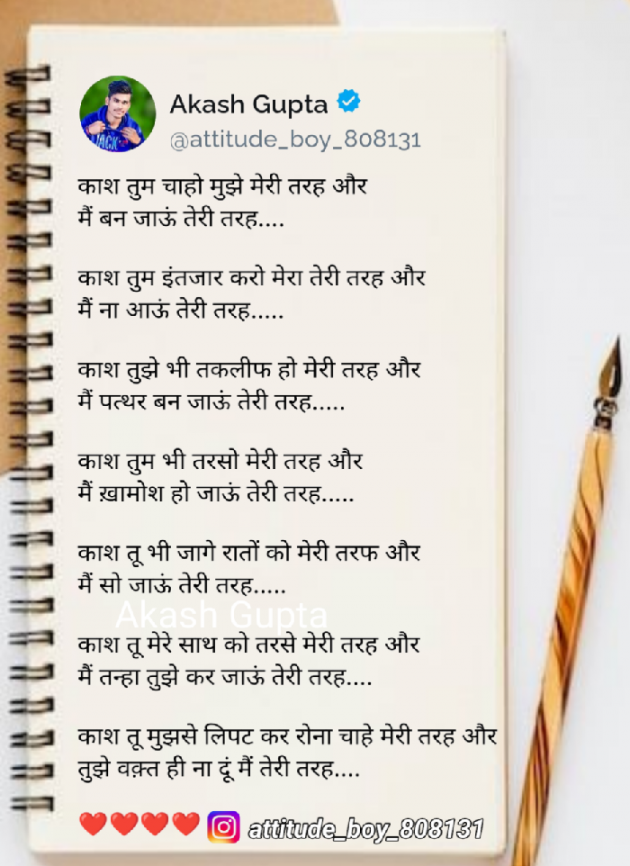 Akash Gupta
@attitude_boy_808131
काश तुम चाहो मुझे मेरी तरह और
मैं बन जाऊं तेरी तरह....
काश तुम इंतजार करो मेरा तेरी तरह और
मैं ना आऊं तेरी तरह.....
काश तुझे भी तकलीफ हो मेरी तरह और
मैं पत्थर बन जाऊं तेरी तरह.....
काश तुम भी तरसो मेरी तरह और
मैं ख़ामोश हो जाऊं तेरी तरह.....
काश तू भी जागे रातों को मेरी तरफ और
मैं सो जाऊं तेरी तरह.....
Akash Gupta
काश तू मेरे साथ को तरसे मेरी तरह और
मैं तन्हा तुझे कर जाऊं तेरी तरह....
काश तू मुझसे लिपट कर रोना चाहे मेरी तरह और
तुझे वक़्त ही ना दूं मैं तेरी तरह....
❤️❤️❤️❤️ attitude_boy_808131